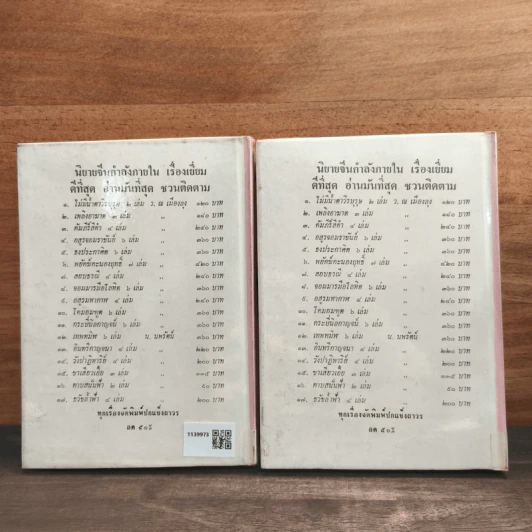 นิยายจีนกำลังภายใน เรื่องเยี่ยม
ดีที่สุด อ่านมันที่สุด ชวนติดตาม
๑. ไม่มีน้ำตาวีรบุรุษ ๒ เล่ม ว. ณ เมืองลุง ๑๒๐ บาท
๒. เพลิงอาฆาต ๓ เล่ม ,, บาท
๓. คัมภีร์สีดำ ๔ เล่ม ,, ๒๔๐ บาท
๔. อสูรจอมราชันย์ ๖ เล่ม ,, ๓๖๐ บาท
๕. ธงประกาศิต ๖ เล่ม ,, ๓๖๐ บาท
๖. พยัคฆ์คะนองฤทธิ์ ๗ เล่ม ,, ๔๒๐ บาท
๗. สอยธรณี ๔ เล่ม ,, ๒๔๐ บาท
๘. จอมมารมือโลหิต ๖ เล่ม ,, ๓๖๐ บาท
๙. อสูรมหากาฬ ๔ เล่ม ,, ๒๔๐ บาท
๑๐. โคมอมนุษ ๖ เล่ม ,, ๓๖๐ บาท
๑๑. กระบี่นิลกาญจน์ ๖ เล่ม ,, ๓๖๐ บาท
๑๒. เทพทมิฬ ๖ เล่ม น. นพรัตน์ ๓๖๐ บาท
๑๓. อินทรีกาญจนา ๔ เล่ม ,, ๒๒๐ บาท
๑๔. วังปาฏิหาริย์ ๔ เล่ม ,, ๒๔๐ บาท
๑๕. ๓ เล่ม ,, บาท
๑๖. ดาบสนั่นฟ้า ๒ เล่ม ,, บาท
๑๗. ธวัชล้ำฟ้า ๔ เล่ม ,, ๒๐๐ บาท
ทุกเรื่องจัดพิมพ์ปกแข็งถาวร
1139973
นิยายจีนกำลังภายใน เรื่องเยี่ยม
ดีที่สุด อ่านมันที่สุด ชวนติดตาม
๑. ไม่มีน้ำตาวีรบุรุษ ๒ เล่ม ว. ณ เมืองลุง ๑๒๐ บาท
๒. เพลิงอาฆาต ๓ เล่ม ,, บาท
๓. คัมภีร์สีดำ ๔ เล่ม ,, ๒๔๐ บาท
๔. อสูรจอมราชันย์ ๖ เล่ม ,, ๓๖๐ บาท
๕. ธงประกาศิต ๖ เล่ม ,, ๓๖๐ บาท
๖. พยัคฆ์คะนองฤทธิ์ ๗ เล่ม ,, ๔๒๐ บาท
๗. สอยธรณี ๔ เล่ม ,, ๒๔๐ บาท
๘. จอมมารมือโลหิต ๖ เล่ม ,, ๓๖๐ บาท
๙. อสูรมหากาฬ ๔ เล่ม ,, ๒๔๐ บาท
๑๐. โคมอมนุษ ๖ เล่ม ,, ๓๖๐ บาท
๑๑. กระบี่นิลกาญจน์ ๖ เล่ม ,, ๓๖๐ บาท
๑๒. เทพทมิฬ ๖ เล่ม น. นพรัตน์ ๓๖๐ บาท
๑๓. อินทรีกาญจนา ๔ เล่ม ,, ๒๒๐ บาท
๑๔. วังปาฏิหาริย์ ๔ เล่ม ,, ๒๔๐ บาท
๑๕. ๓ เล่ม ,, บาท
๑๖. ดาบสนั่นฟ้า ๒ เล่ม ,, บาท
๑๗. ธวัชล้ำฟ้า ๔ เล่ม ,, ๒๐๐ บาท
ทุกเรื่องจัดพิมพ์ปกแข็งถาวร